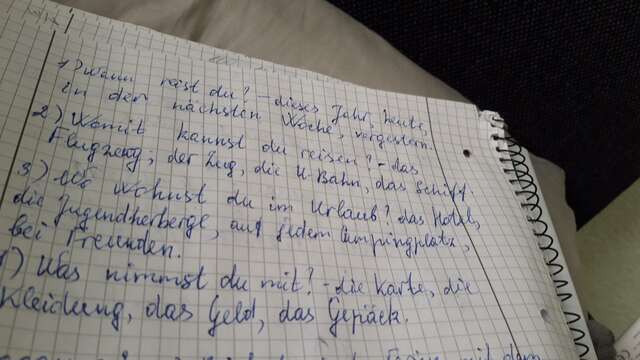 1) Wann reist du? - dieses Jahr, heute,
in der nächsten Woche, vorgestern.
2) Womit kannst du reisen? - das
Flugzeug, der Zug, die U-Bahn, das Schiff
3) Wo wohnst du im Urlaub? das Hotel,
die Jugendherberge, auf jedem Campingplatz,
bei Freunden.
4) Was nimmst du mit? - die Karte, die
Kleidung, das Geld, das Gepäck.